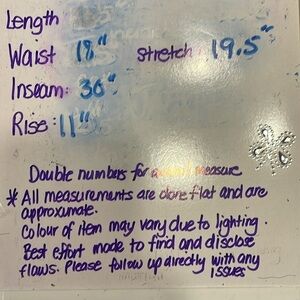 Length
Waist 18" stretch: 19.5"
Inseam: 30"
Rise: 11"
Double numbers for measure
* All measurements are done flat and are
approximate.
Colour of item may vary due to lighting.
Best effort made to find and disclose
flaws. Please follow up directly with any
issues